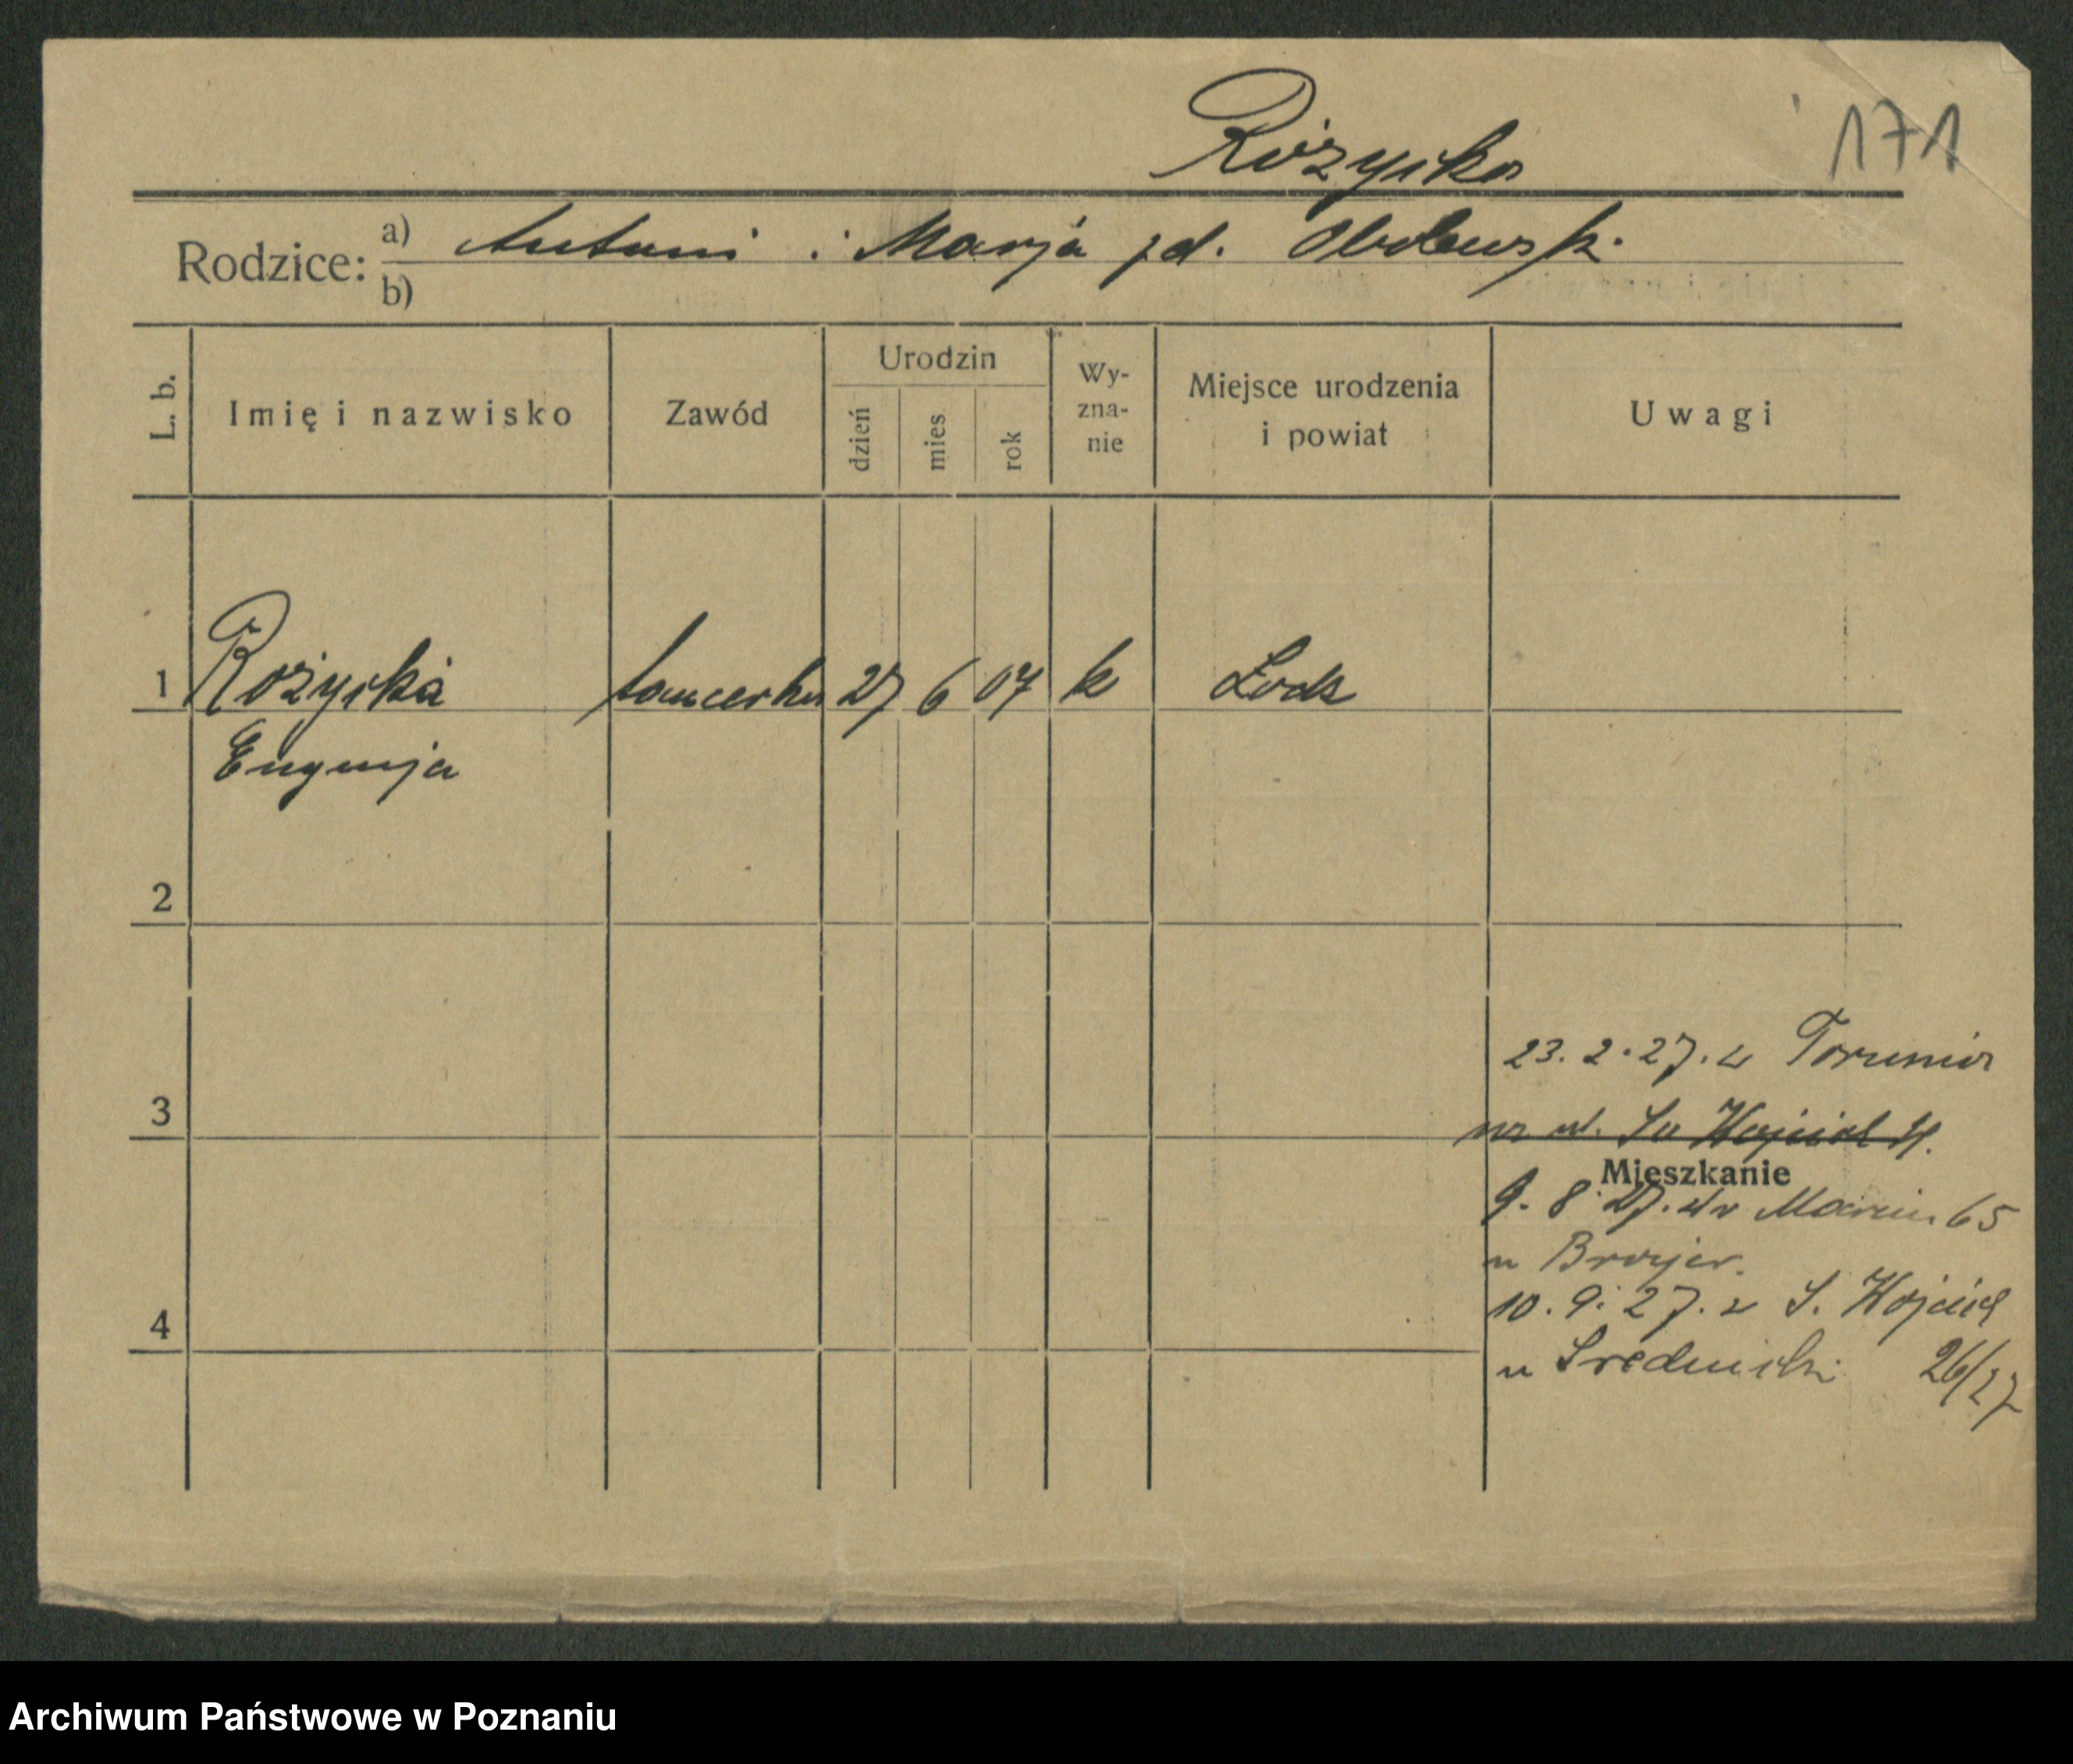 Różycka
171
Rodzice: a) Antoni i Marja zd.
b)
L. b.
Imię i nazwisko
Zawód
Urodzin
dzień
mies
rok
Wy-
zna-
nie
Miejsce urodzenia
i powiat
Uwagi
1 Różycka tancerka 27 6 07 k Łodz
Eugenja
2
23. 2. 27. z Torunia
3
na ul. Św Wojciech
Mieszkanie
9. 8. 27. Marcin 65
u
10. 9. 27. Wojciech
4
u 26/27
Archiwum Państwowe w Poznaniu